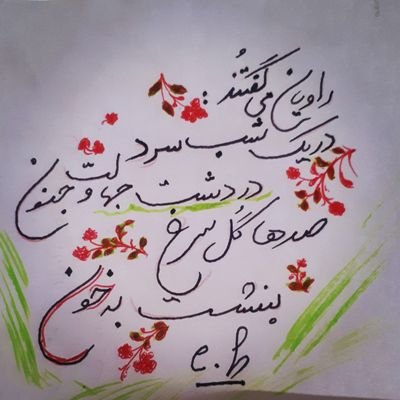 راویان می گفتند :
در یک شب سرد
در دشت جهالت و جنون
صدها گل سرخ
بنشست به خون
e.h